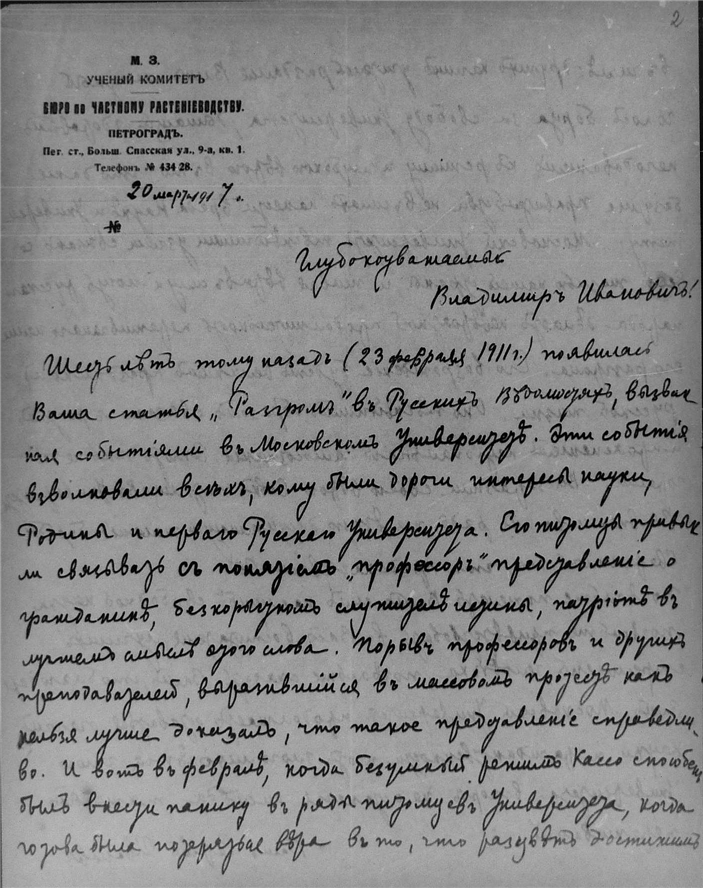 2
М. З.
УЧЕНЫЙ КОМИТЕТЪ
БЮРО по ЧАСТНОМУ РАСТЕНІЕВОДСТВУ.
ПЕТРОГРАДЪ.
Пет. ст., Больш. Спасская ул., 9-а, кв. 1.
Телефонъ № 434 28.
20 марта 1917 г.
№
Глубокоуважаемый
Владимиръ Ивановичъ!
Шесть лѣтъ тому назадъ (23 февраля 1911 г.) появилась
Ваша статья „Разгромъ" въ Русскихъ Вѣдомостяхъ, вызван
ная событіями въ Московскомъ Университетѣ. Эти событія
взволновали всѣхъ, кому были дороги интересы науки,
Родины и перваго Русскаго Университета. Его питомцы привык
ли связывать съ понятіемъ „профессоръ" представленіе о
гражданинѣ, безкорыстномъ служителѣ истины, патріотѣ въ
лучшемъ смыслѣ этого слова. Порывъ профессоровъ и другихъ
преподавателей, выразившійся въ массовомъ протестѣ какъ
нельзя лучше доказалъ, что такое представленіе справедли-
во. И вотъ въ февралѣ, когда безумный режимъ Кассо способенъ
былъ внести панику въ ряды питомцевъ Университета, когда
готова была потеряться вѣра въ то, что разсвѣтъ достижимъ